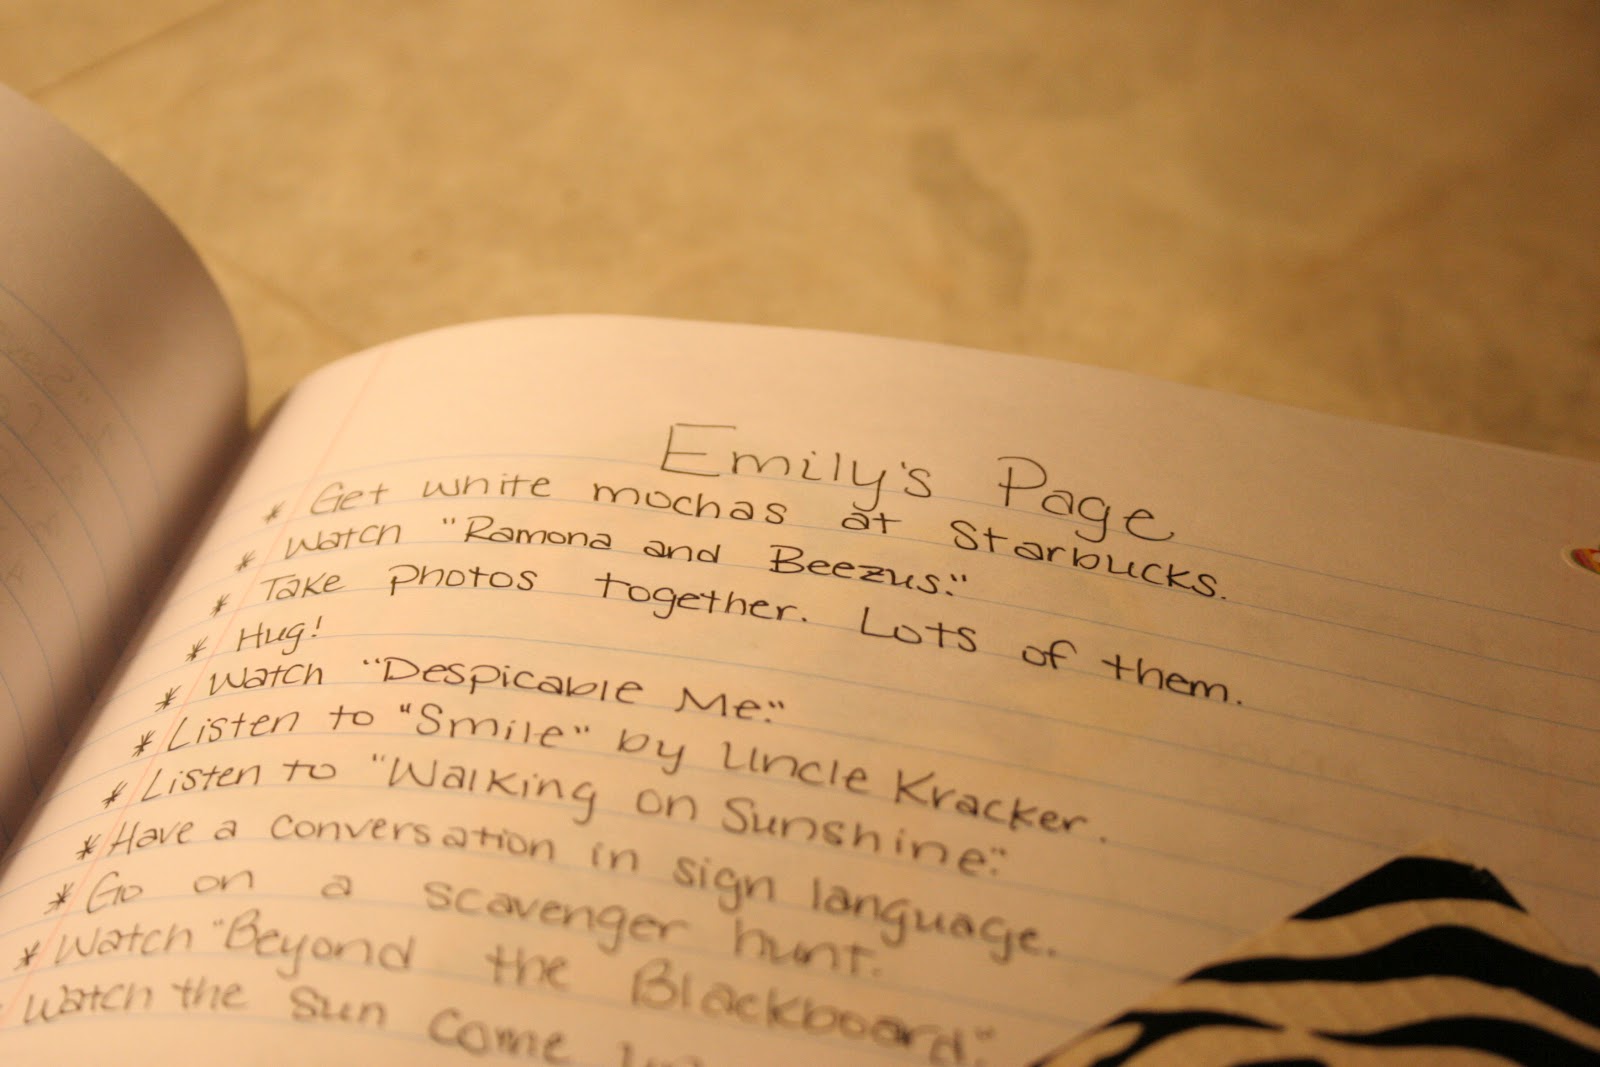 Emily's Page
* Get white mochas at Starbucks.
* Watch "Ramona and Beezus."
* Take photos together. Lots of them.
* Hug!
* Watch "Despicable Me."
* Listen to "Smile" by Uncle Kracker.
* Listen to "Walking on Sunshine."
* Have a conversation in sign language.
* Go on a scavenger hunt.
* Watch "Beyond the Blackboard."
Watch the sun come